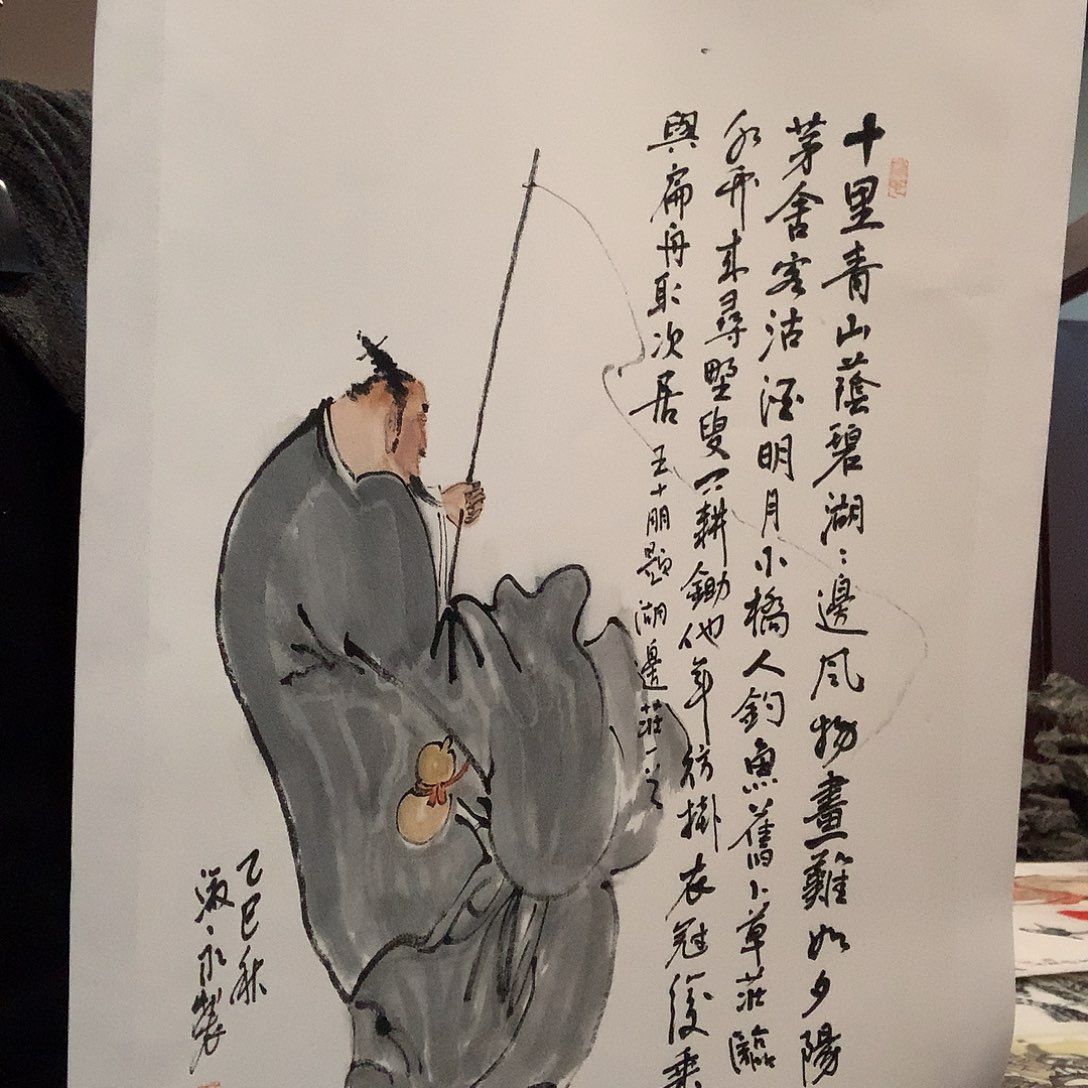 十里青山蔭碧湖:邊風物畫難如夕陽
茅舍客沽酒明月小橋人釣魚舊卜草莊臨
水竹來尋野叟不耕鋤他年待掛衣冠後乘
與扁舟取次居 王十朋題湖邊莊一首
乙巳秋
永製